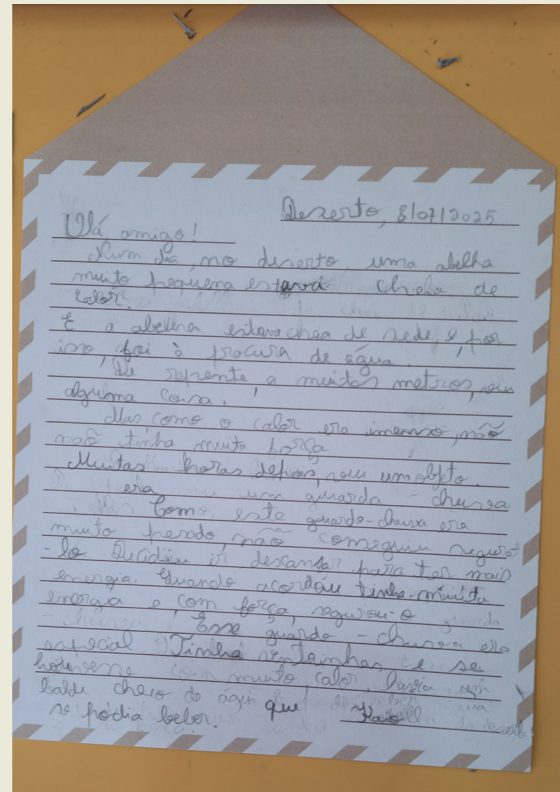 Deserto, 8/07/2025
Olá amigo!
Num dia, no deserto uma abelha
muito pequena estava cheia de
calor.
E a abelha estava chea de sede, e, por
isso, foi à procura de água.
De reprente a muitos metros, viu
alguma coisa.
Mas, como o calor era imenso, não
naõ tinha muita força
Muitas horas depois, viu um objeto.
era um guarda-chuva
Como este guarda-chuva era
muito pesado, não conseguiu segurá
-lo Decidiu ir descansar para ter mais
energia. Quando acordou tinha muita
energia e com força, segurou-o
Esse guarda-chuva era
especial. Tinha ventoinhas e se
houvesse muito calor havia um
balde cheio de água que
se podia beber.